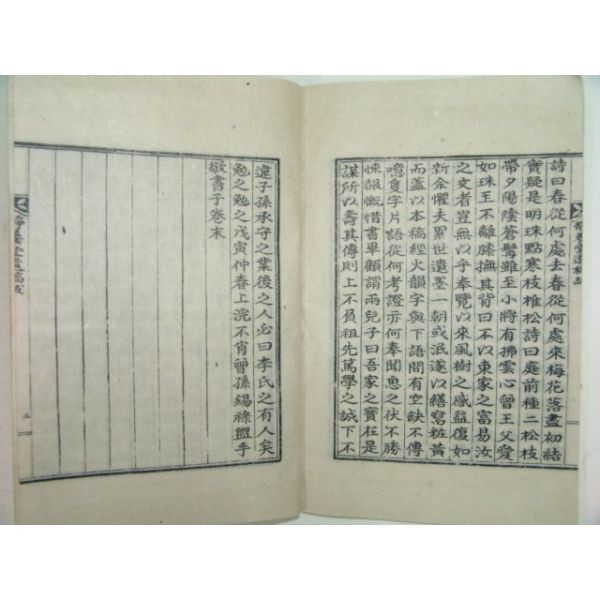 詩曰春從何處去春從何處來梅花落盡初結
實疑是明珠點寒枝稚松詩曰庭前種二松枝
帶夕陽陰蒼髯雖至小將有拂雲心曾王父愛
如珠玉不離膝撫其背曰不以東家之富易汝
之文者豈無以乎奉覽以來風樹之感益復如
新余懼夫累世遺墨一朝或泯遂以繕寫粧黃
而蓋以本稿經火韻字與下語間有空缺不傳
噫隻字片語從何考證亦何奉聞惫之伏不勝
悚報慨惜書畢顧謂兩兒子曰吾家之寶在是
謀所以壽其傳則上不負祖先篤學之誠下不
違子孫承守之業後之人必曰李氏之有人矣
勉之勉之戊寅仲春上浣不肖曾孫錫祿盥手
敬書于卷末
二